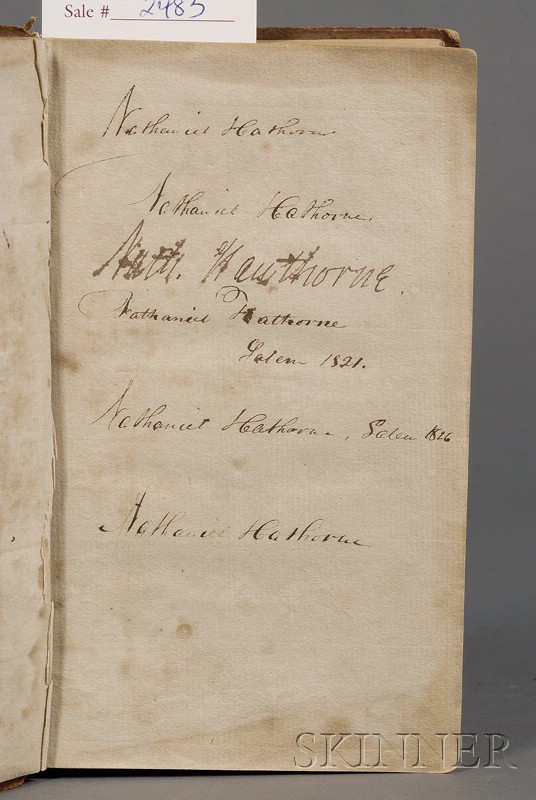 Sale # 2485
Nathaniel Hathorne
Nathaniel Hathorne.
Nath. Hawthorne.
Nathaniel Hathorne
Salem 1821.
Nathaniel Hathorne, Salem 1826
Nathaniel Hathorne
SKINNER